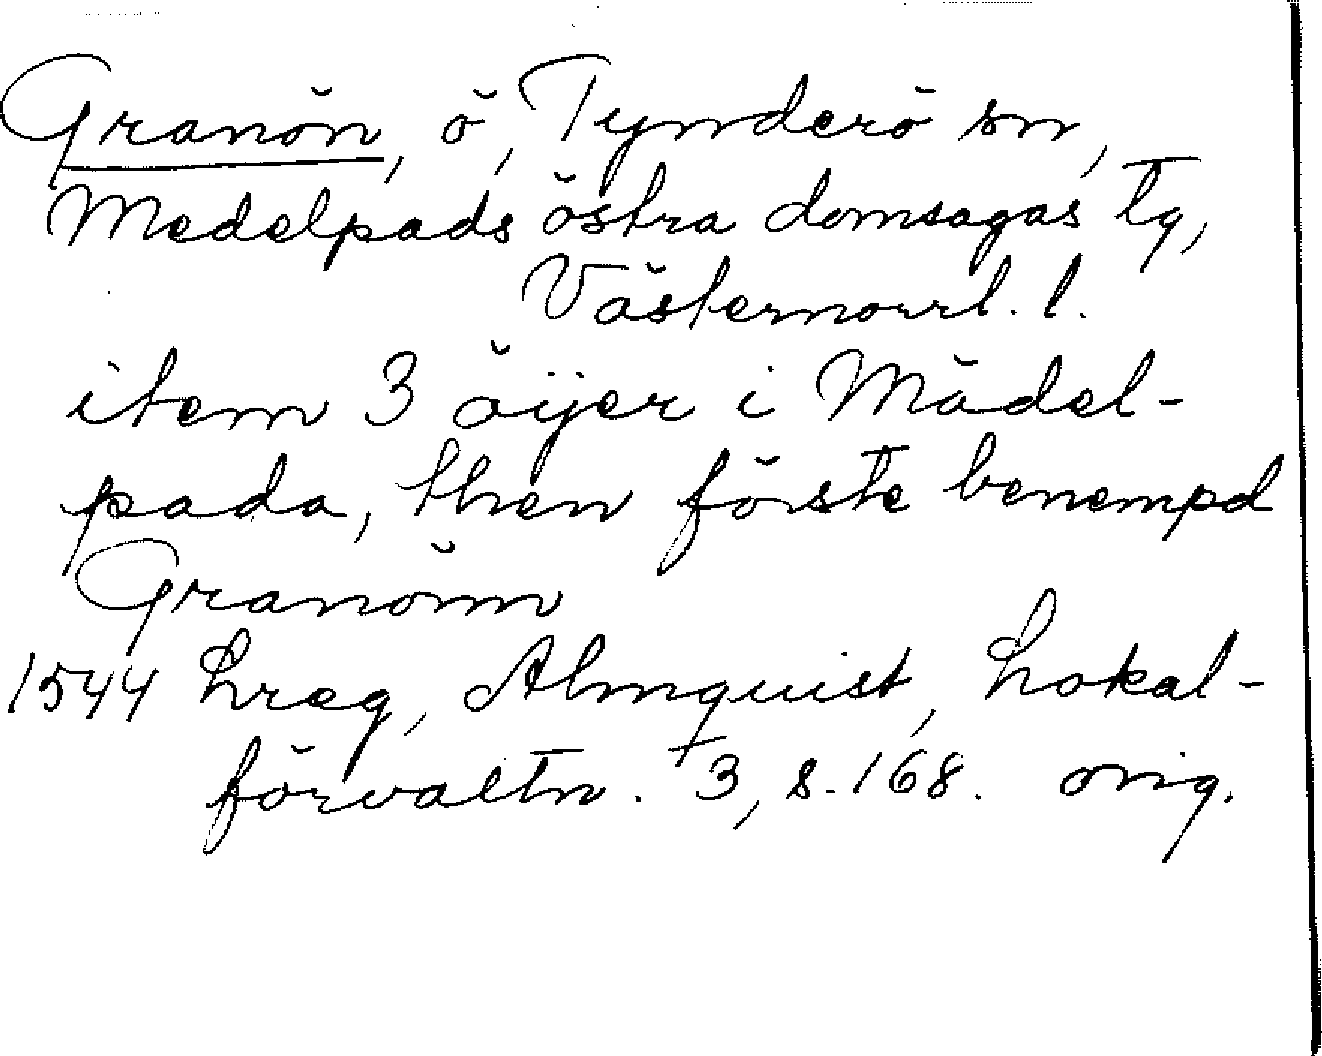 Granön, ö, Tynderö sn,
Medelpads östra domsagas tg,
Västernorrl. l.
item 3 öijer i Mädel-
pada, then förste benempd
Granönn
1544 Lreg, Almquist, Lokal-
förvaltn. 3, s. 168. orig.